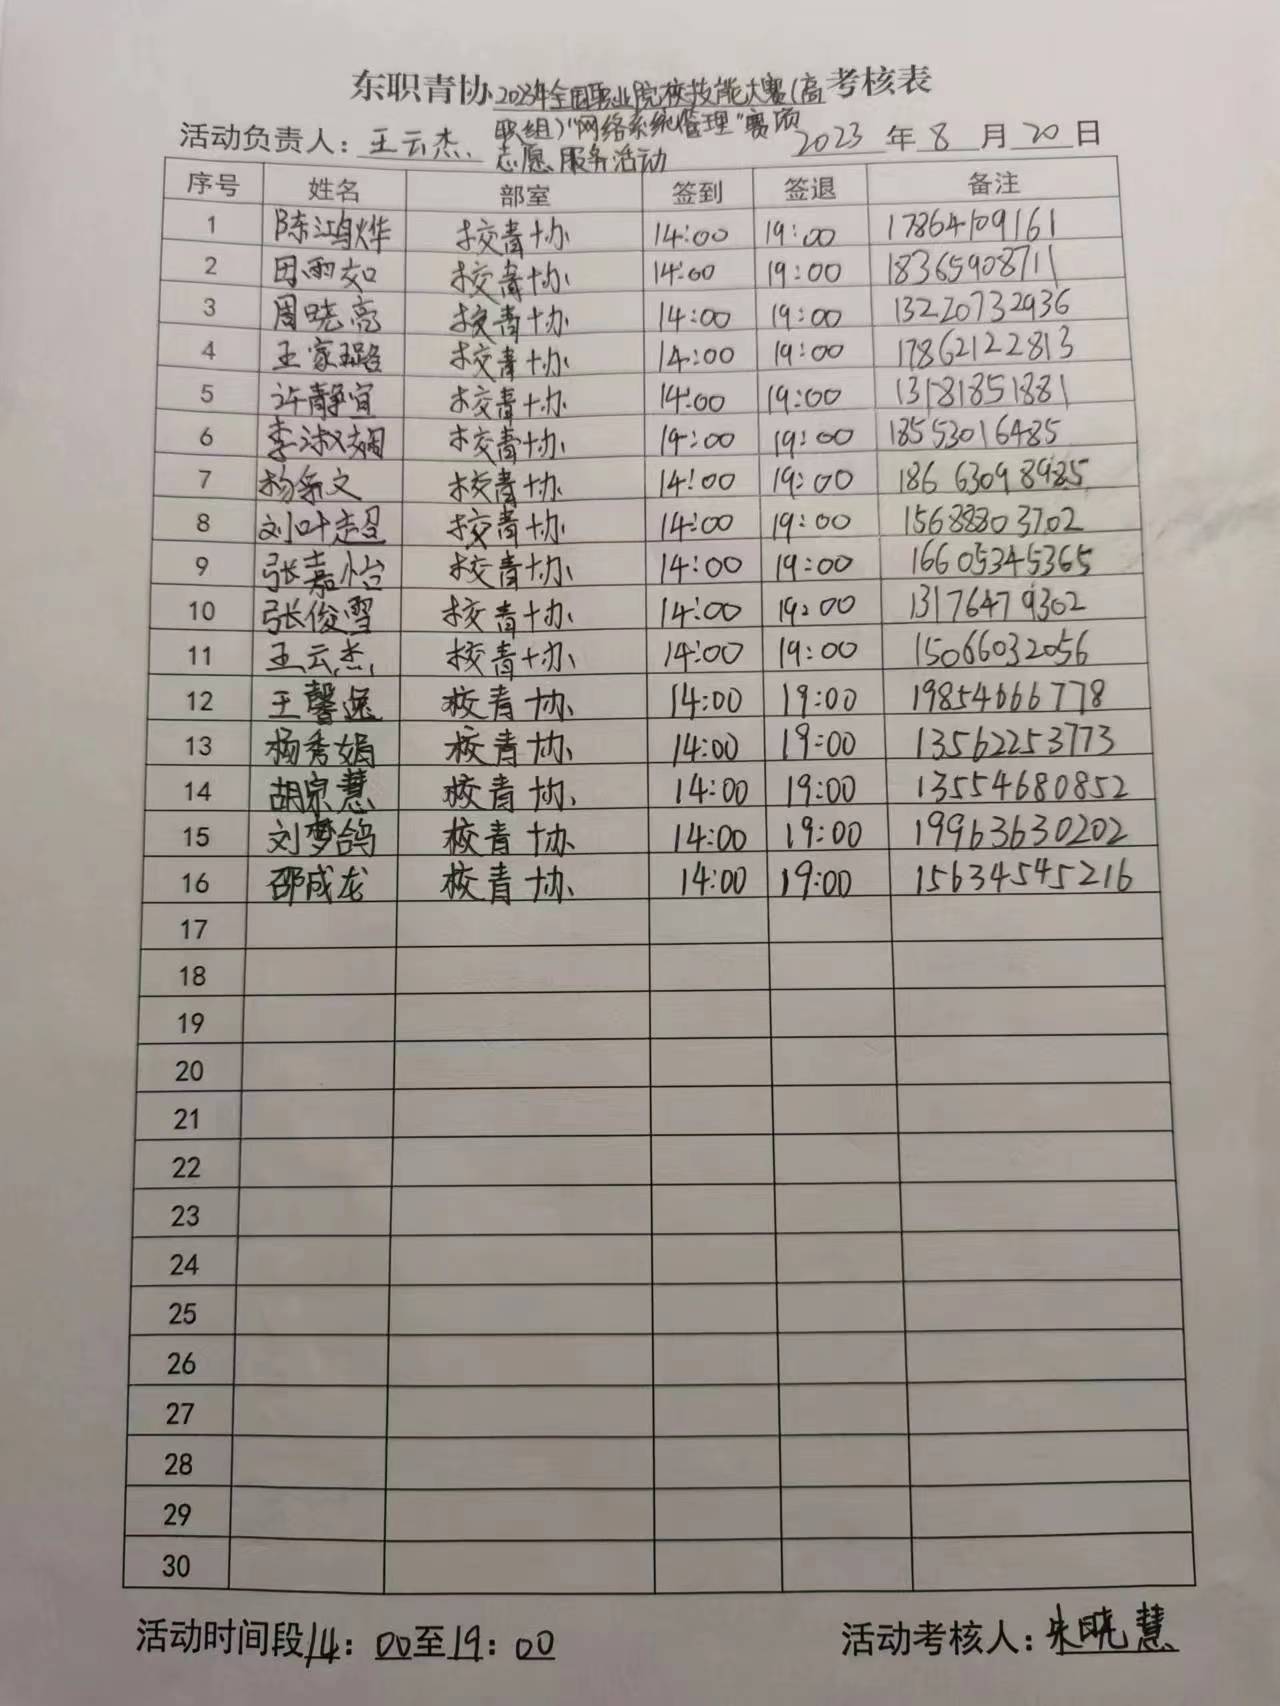 东职青协2023年全国职业院校技能大赛(高考核表
职组)"网络系统管理"赛项
志愿服务活动
活动负责人：王云杰 2023年8月20日
序号 姓名 部室 签到 签退 备注
1 陈鸿烨 校青协 14:00 19:00 17864109161
2 田雨如 校青协 14:00 19:00 18365908711
3 周晓亮 校青协 14:00 19:00 13220732936
4 王家璐 校青协 14:00 19:00 17862122813
5 许静宜 校青协 14:00 19:00 13181851881
6 李淑娴 校青协 19:00 19:00 18553016485
7 杨 文 校青协 14:00 19:00 18663098985
8 刘叶超 校青协 14:00 19:00 15688803702
9 张嘉怡 校青协 14:00 19:00 16605345365
10 张俊雪 校青协 14:00 19:00 13176479302
11 王云杰 校青协 14:00 19:00 15066032056
12 王馨逸 校青协 14:00 19:00 19854666778
13 杨秀娟 校青协 14:00 19:00 13562253773
14 胡宗慧 校青协 14:00 19:00 13554680852
15 刘梦鸽 校青协 14:00 19:00 19963630202
16 邵成龙 校青协 14:00 19:00 15634545216
17
18
19
20
21
22
23
24
25
26
27
28
29
30
活动时间段14：00至19：00 活动考核人：朱晓慧